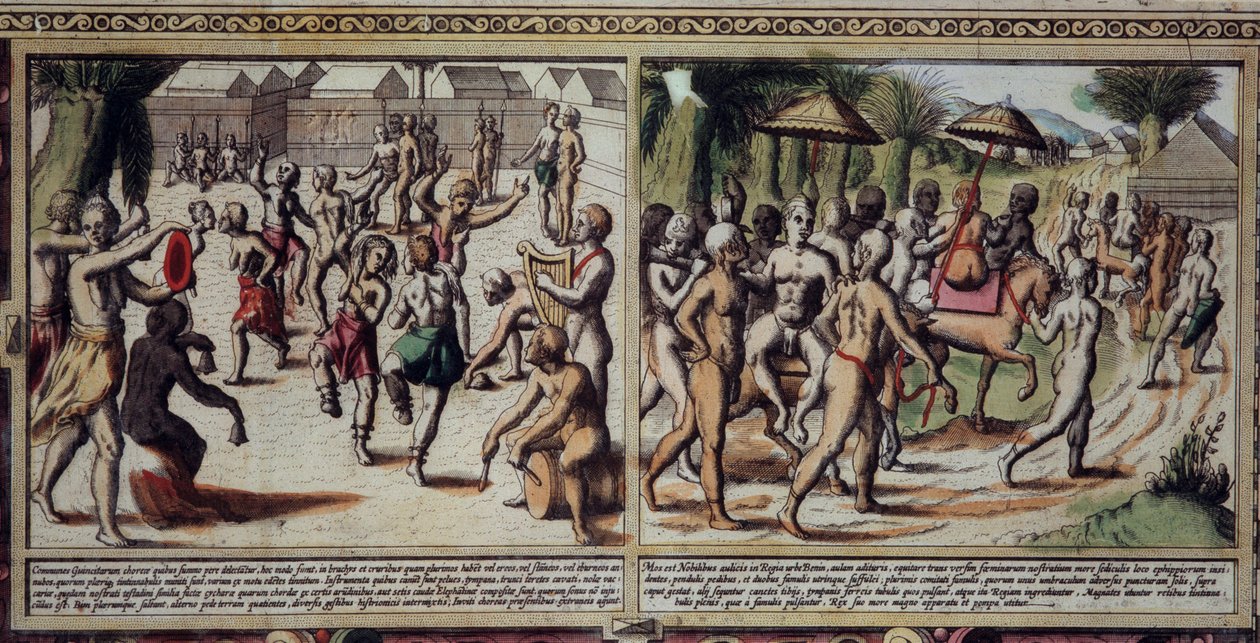 Communes Guineitarum choreæ quibus summo pere delectatur, hoc modo sunt, in brachys et cruribus quam plurimos habēt vel æreos, vel stāneos, vel eburneos an
nulos, quorum plæriq; tintinnabulis muniti sunt, varium ex motu edētes tinnitum. Instrumenta quibus canūt sunt pelues, tympana, trunci teretes cavati, nolæ vac
cariæ, quædam nostrati testudini similia, factæ cytharæ quarum chordæ ex certis arūdinibus, aut setis caudæ Elephātinæ compositæ sunt, quorum sonus nō inju
cūdus est. Bini plerumque saltant, alterno pede terram quatientes, diversis gestibus histrionicis intermixtis; Inviti choreas præsentibus extraneis agunt.
Mos est Nobilibus aulicis in Regia urbe Benin, aulam adituris, equitare trans versim fœminarum nostratium more sediculis loco ephippiorum insi
dentes, pendulis pedibus, et duobus famulis utrinque suffulti; plurimis comitati famulis, quorum unus umbraculum adversus puncturam solis, supra
caput gestat, alij sequuntur canētes tibijs, tympanis ferreis tubulis quos pulsant, atque ita Regiam ingrediuntur, Magnates utuntur retibus tintinna-
bulis plenis, quæ a famulis pulsantur, Rex suo more magno apparatu et pompa utitur.